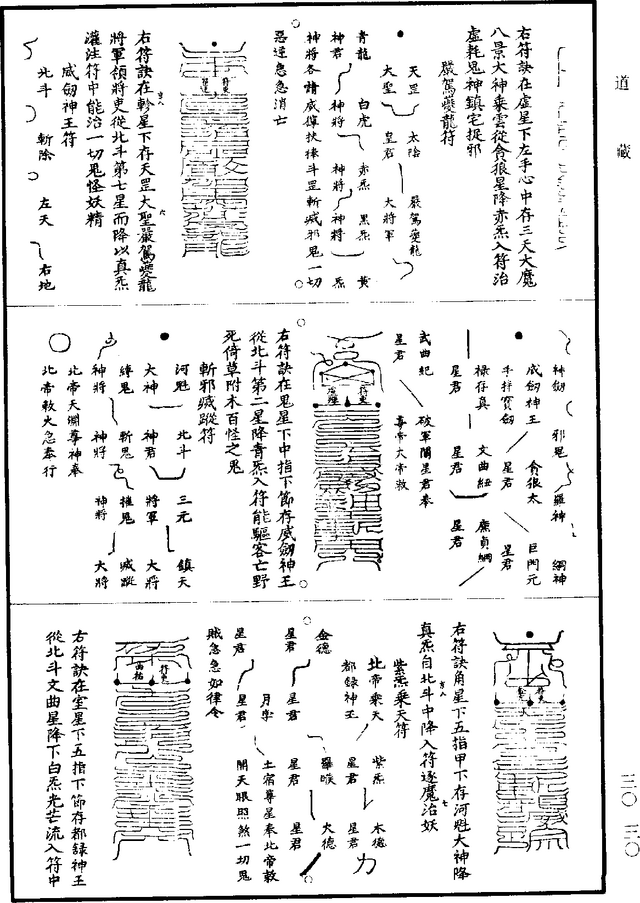 道藏
右符訣在虛星下左手心中存三天大魔
八景大神乘雲從貪狼星降赤炁入符治
虛耗鬼神鎮宅捉邪
嚴駕變龍符
天罡 太陰 嚴駕變龍
大聖 皇君 大將軍
青龍 白虎 赤炁 黑炁 黃
神君 神將 神將 神將 炁
神將各請威倬扶捧斗罡斬滅邪鬼一切
惡逆急急消亡
右符訣在軫星下存天罡大聖嚴駕變龍
將軍領將吏從北斗第七星而降以真炁
灌注符中能治一切鬼怪妖精
威劒神王符
北斗 斬除 左天 右地
神劒 邪鬼 羅神 綱神
威劒神王 貪狼太 巨門元
手持寶劒 星君 星君
祿存真 文曲紐 廉貞綱
星君 星君 星君
武曲紀 破軍關星君奉
星君 毒帝大帝敕
右符訣在鬼星下中指下節存威劒神王
從北斗第二星降青炁入符能驅客亡野
死倚草附木百怪之鬼
斬邪滅蹤符
河魁 北斗 三元 鎮天
大神 神君 將軍 大將
縛鬼 斬鬼 摧鬼 滅蹤
神將 神將 神將 大將
北帝天淵尊神奉
北帝敕火急奉行
右符訣角星下五指甲下存河魁大神降
真炁自北斗中降入符逐魔治妖
紫炁乘天符
北帝乘天 紫炁 木德
都錄神王 星君 星君
金德 羅睺 火德
星君 星君 星君 星君
月孛 土宿尊星奉北帝敕
星君 星君 開天眼照煞一切鬼
賊急急如律令
右符訣在室星下五指下節存都錄神王
從北斗文曲星降下白炁光芒流入符中
三〇 三〇